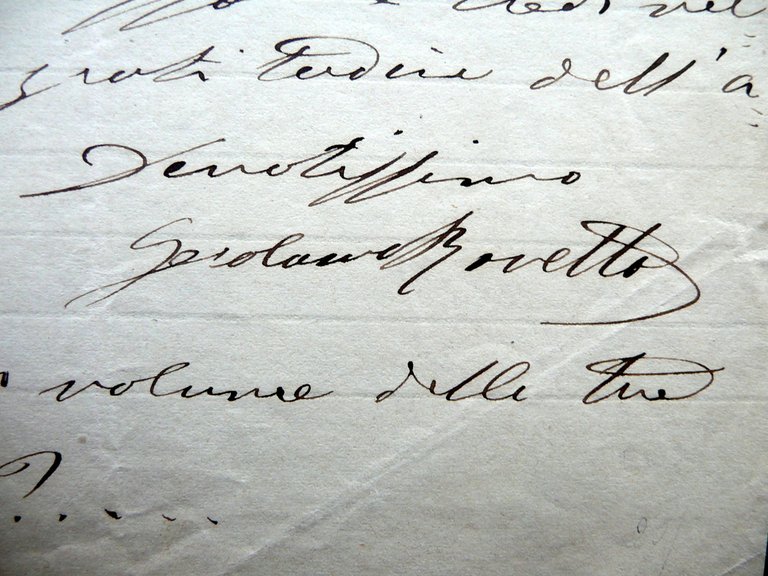 gratitudine dell'a=
Devotissimo
Gerolamo Rovetta
volume delle tue
?.....